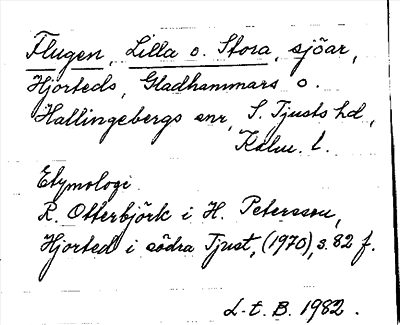 Flugen, Lilla o. Stora, sjöar,
Hjorteds, Gladhammars o.
Hallingebergs snr, S. Tjusts hd.,
Kalm. l.
Etymologi
R. Otterbjörk i H. Petersson,
Hjorted i södra Tjust, (1970), s. 82 f.
L-t. B. 1982.